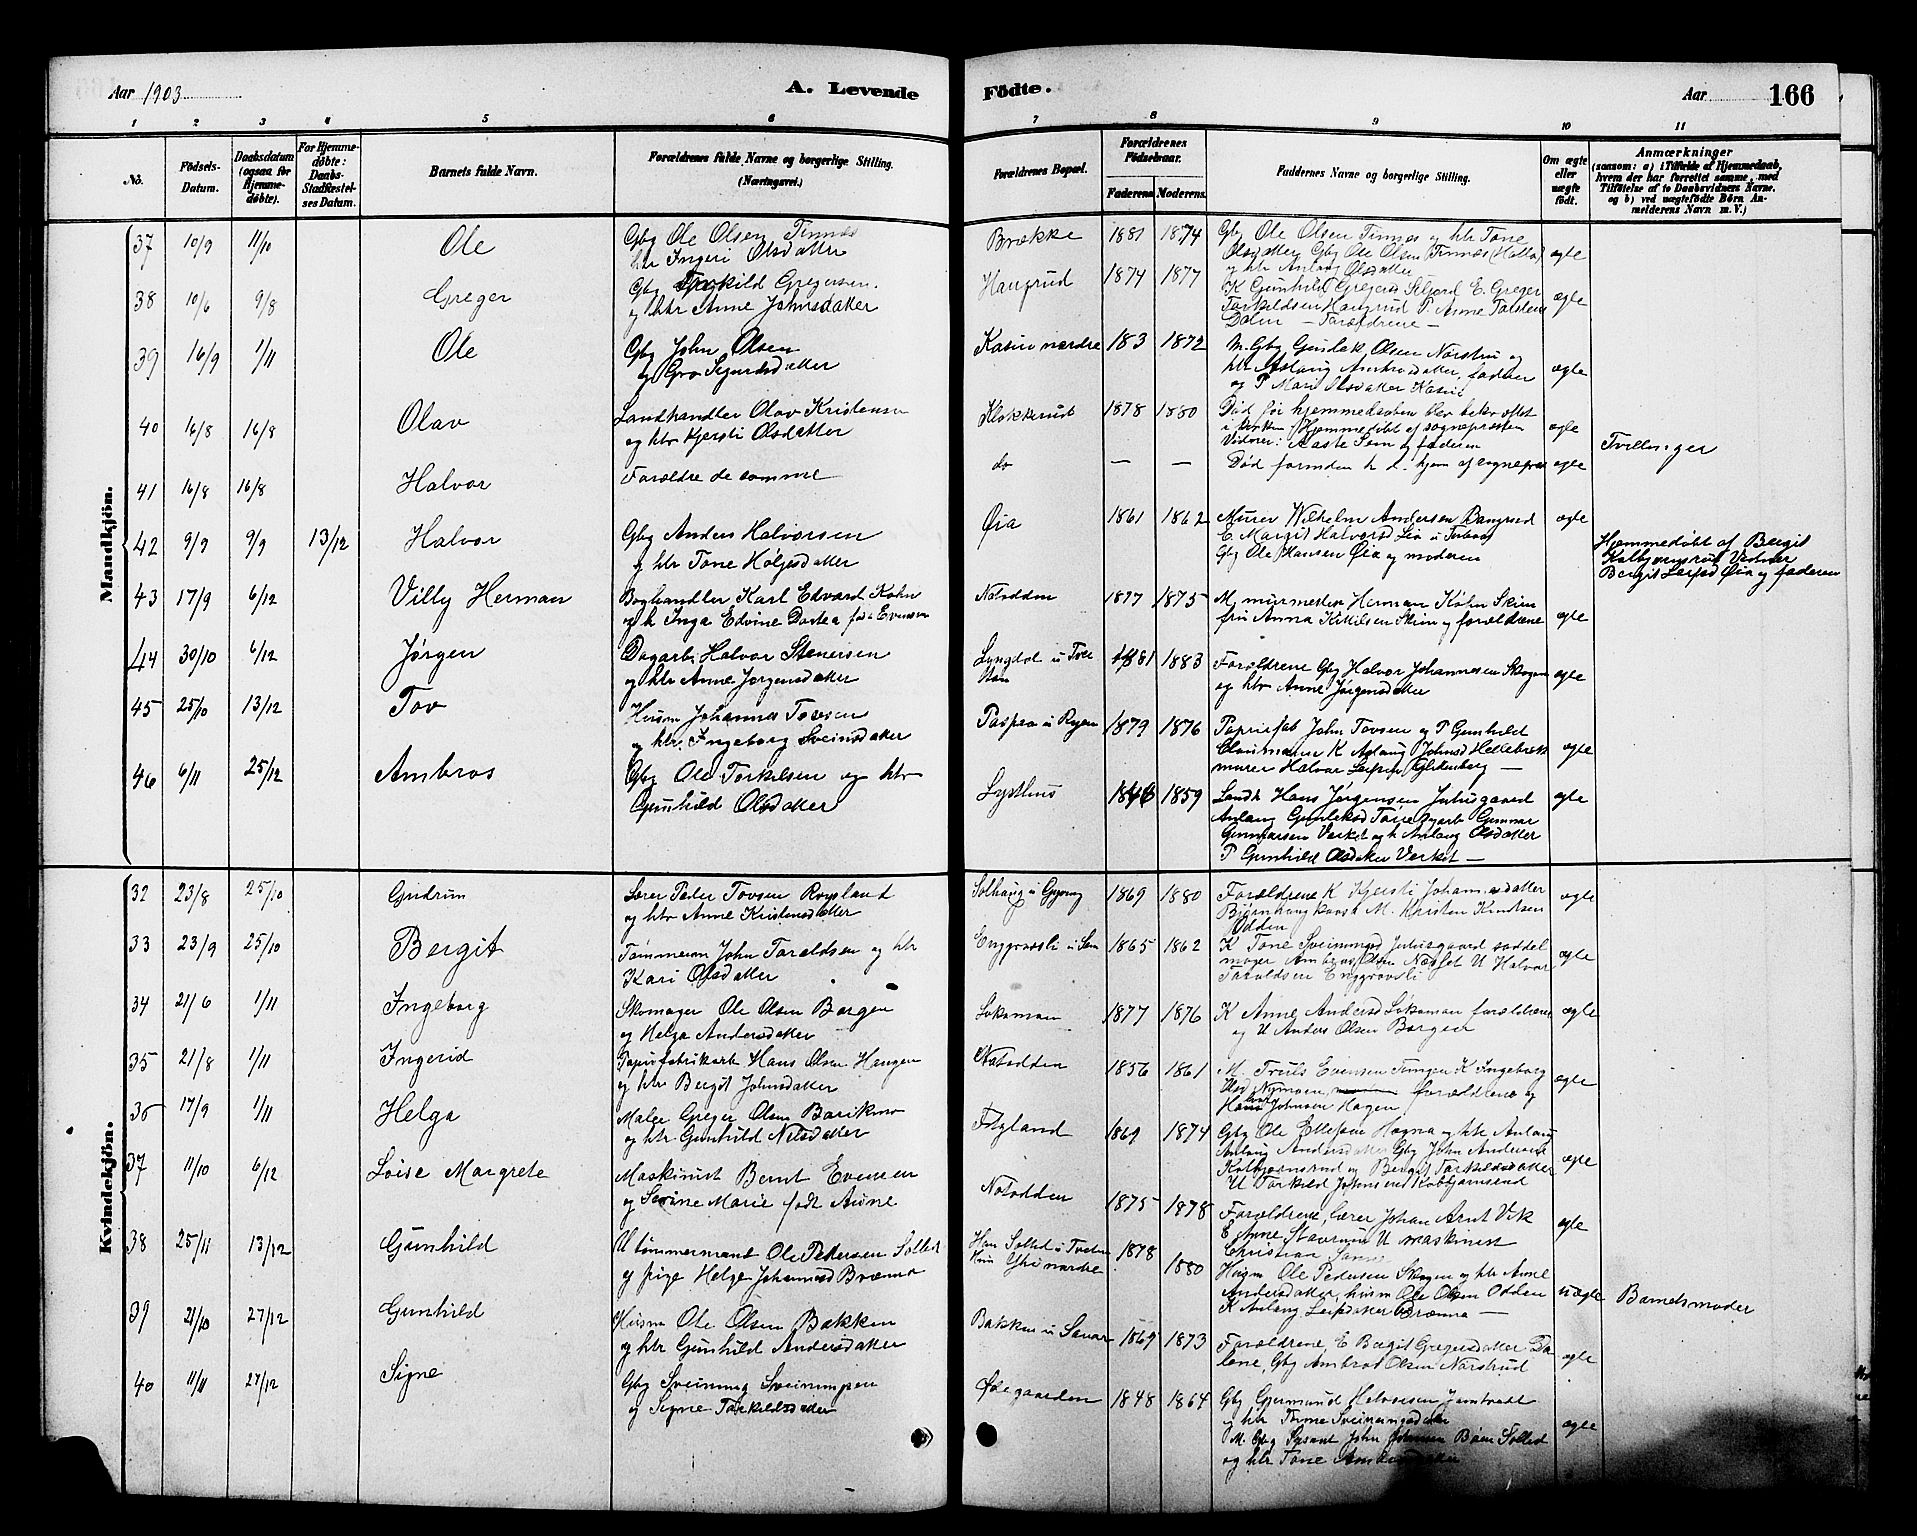 Aar 1903
A. Levende
Födte.
Aar
166
1 2 3 4 5 6
7 8 9 10 11
No.
Födsels-
Datum.
Daabsdatum
(ogsaa for
Hjemme-
døbte).
For Hjemme-
døbte:
Daabs-
Stadfæstel-
ses Datum.
Barnets fulde Navn.
Forældrenes fulde Navne og borgerlige Stilling.
(Næringsvei.)
Forældrenes Bopæl.
Forældrenes
Födselsaar.
Faderens Moderens.
Faddernes Navne og borgerlige Stilling.
Om ægte
eller
uægte
født.
Anmærkninger
(saasom: a) i Tilfælde af Hjemmedaab,
hvem der har forrettet samme, med
Tilföielse af to Daabsvidners Navne,
og b) ved uægtefödte Börn An-
melderens Navn m. V.)
Mandkjön.
37 10/9 11/10 Ole Gbg Ole Olsen Tinnes
htr Ingeri Olsdatter
Brække 1881 1874 Gbg Ole Olsen Tinnes og htr Tone
Olsdatter Gbg Ole Olsen Tinnes (Hølla)
og htr Aslaug Olsdatter
ægte
38 10/6 9/8 Greger Gbg Torkild Gregersen
og htr Anne Johnsdatter
Haugrud 1874 1877 K Gunhild Gregersd Seljord E. Greger
Torkildsen Haugrud P. Anne Tolsten
Dalen — Forældrene —
ægte
39 16/9 1/11 Ole Gbg John Olsen
og Gro Sjurdsdatter
Kasin nordre 183 1872 M. Gbg Gunlek Olsen Narstru og
htr Aslaug Ambrosdatter, fader
og P Mari Olsdatter Kasin
ægte
40 16/8 16/8 Olav Landhandler Olav Kristensen
og htr Kjersti Olsdatter
Klokkerud 1878 1880 Død før hjemmedaaben blev bekræftet
i kirken / Hjemmedøbt af sogneprsten
Vidner: Aaste Sem og faderen
ægte
Tvillinger
41 16/8 16/8 Halvor Forældre de samme
do — — Død formden h d. hjem af sognepres
ægte
42 9/9 9/9 13/12 Halvor Gbg Anders Halvorsen
og htr Tone Høljesdatter
Øia 1861 1862 Murer Wilhelm Andersen Bangrud
E. Margit Halvorsd Lia u
Gbg Ole Hansen Øia og moderen
ægte
Hjemmedøbt af Bergit
Kolbjørnsrud Vidner
Bergit Leifsd Øia og faderen
43 17/9 6/12 Villy Herman Boghandler Karl Edvard Køhn
og h Inga Edvine Dortea født Evensen
Notodden 1877 1875 M. murmester Herman Køhn Skien
fru Anna Kittilsen Skien og forældrene
ægte
44 30/10 6/12 Jørgen Dagarb. Halvor Stenersen
og htr Anne Jørgensdatter
Lyngdal u Tve
sten
1881 1883 Forældrene Gbg Halvor Johannesen Skogen
og htr Anne Jørgensdatter
ægte
45 25/10 13/12 Tov Husm Johannes Tovsen
og htr. Ingeborg Sveinsdatter
1879 1876 Papirfab John Tovsen og P Gunhild
K Aslaug Johnsd Hellebrek
murer Halvor Leifsen Gyldenborg —
ægte
46 6/11 25/12 Ambros Gbg Ole Torkilsen og htr
Gunhild Olsdatter
Lysthus 1846 1859 Landh Hans Jørgensen Juvsgaard
Aslaug Gunleksd Tone Dgarb Gunnar
Gunnarsen Verket og h Aslaug Olsdatter
P Gunhild Olsdatter Verket —
ægte
Kvindekjön.
32 23/8 25/10 Gudrun Lærer Peder Tovsen Røysland
og htr Anne Kristensdatter
Solhaug u Gryong 1869 1880 Forældrene K Kjersti Johannesdatter
Bjørnhaug M. Kristen Knudsen
Odden
ægte
33 23/9 25/10 Bergit Tømmerm John Taraldsen og htr
Kari Olsdatter
Enggravsli u Sem 1865 1862 K Tone Sveinungsd Juvsgaard saddel
mager Ambros Olsen Næsset U Halvor
Taraldsen Enggravsli
ægte
34 21/6 1/11 Ingeborg Skomager Ole Olsen Borgen
og Helga Andersdatter
Løkamoen 1877 1876 K Anne Andersd Løkamoen forældrene
og U Anders Olsen Borgen
ægte
35 21/8 1/11 Ingerid Papirfabrikarb Hans Olsen Haugen
og htr Bergit Johnsdatter
Notodden 1856 1861 M. Truls Evensen Tingen K Ingeborg
Olsd Nymoen, forældrene og
Hans Johnsen Hagen
ægte
36 17/9 1/11 Helga Maler Greger Olsen Barikmo
og htr Gunhild Nilsdatter
Følgland 1869 1874 Gbg Ole Ellefsen Hogna og htr Aslaug
Aslaug Andersdatter Gbg John Andersen
Kolbjørnsrud og Bergit Torkildsdatter
U Torkild Johnsen Kolbjørnsrud
ægte
37 11/10 6/12 Loise Margrete Maskinist Bernt Evensen
og Serine Marie født Aune
Notodden 1875 1878 Forældrene, lærer Johan Arnt Vik
E Anne Stavrum U maskinist
Christian
ægte
38 25/11 13/12 Gunhild U tømmermand Ole Pedersen Solled
og pige Helge Johannesd Brænna
1878 1880 Husm Ole Pedersen Skogen og htr Anne
Andersdatter, husm Ole Olsen Odden
K Aslaug Leifsdatter Brænna —
uægte
Barnets moder
39 21/10 27/12 Gunhild Husm Ole Olsen Bakken
og htr Gunhild Andersdatter
Bakken u Sanar 1869 1873 Forældrene, E Bergit Gregersdatter Da
lene, Gbg Ambros Olsen Narstrud
ægte
40 11/11 27/12 Signe Gbg Sveinung Sveinungsen
og Signe Torkildsdatter
Ødegaarden 1848 1864 Gbg Gjermund Halvorsen
og htr Tone Sveinungsdatter
M. Gbg John Johnsen Bøen Solled
og htr Tone
ægte